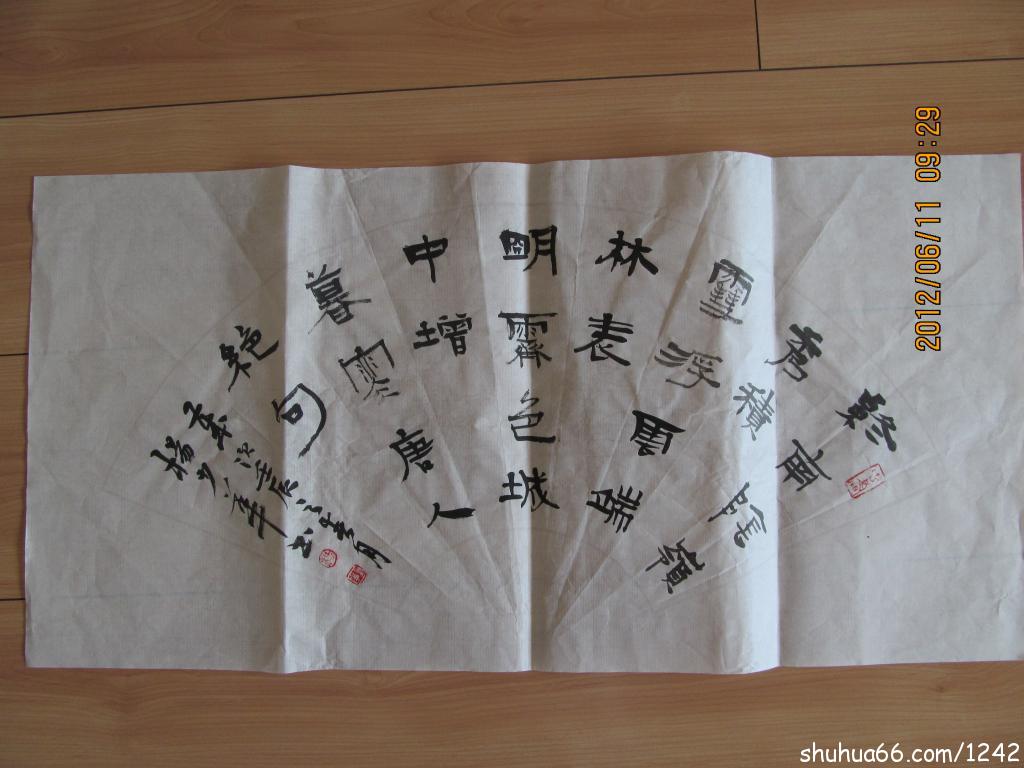 終南陰嶺
秀積
雪浮雲端
林表
明霽色城
中增
暮寒唐人
絕句
歲次壬辰 月
楊少 书
2012/06/11 09:29
shuhua66.com/1242